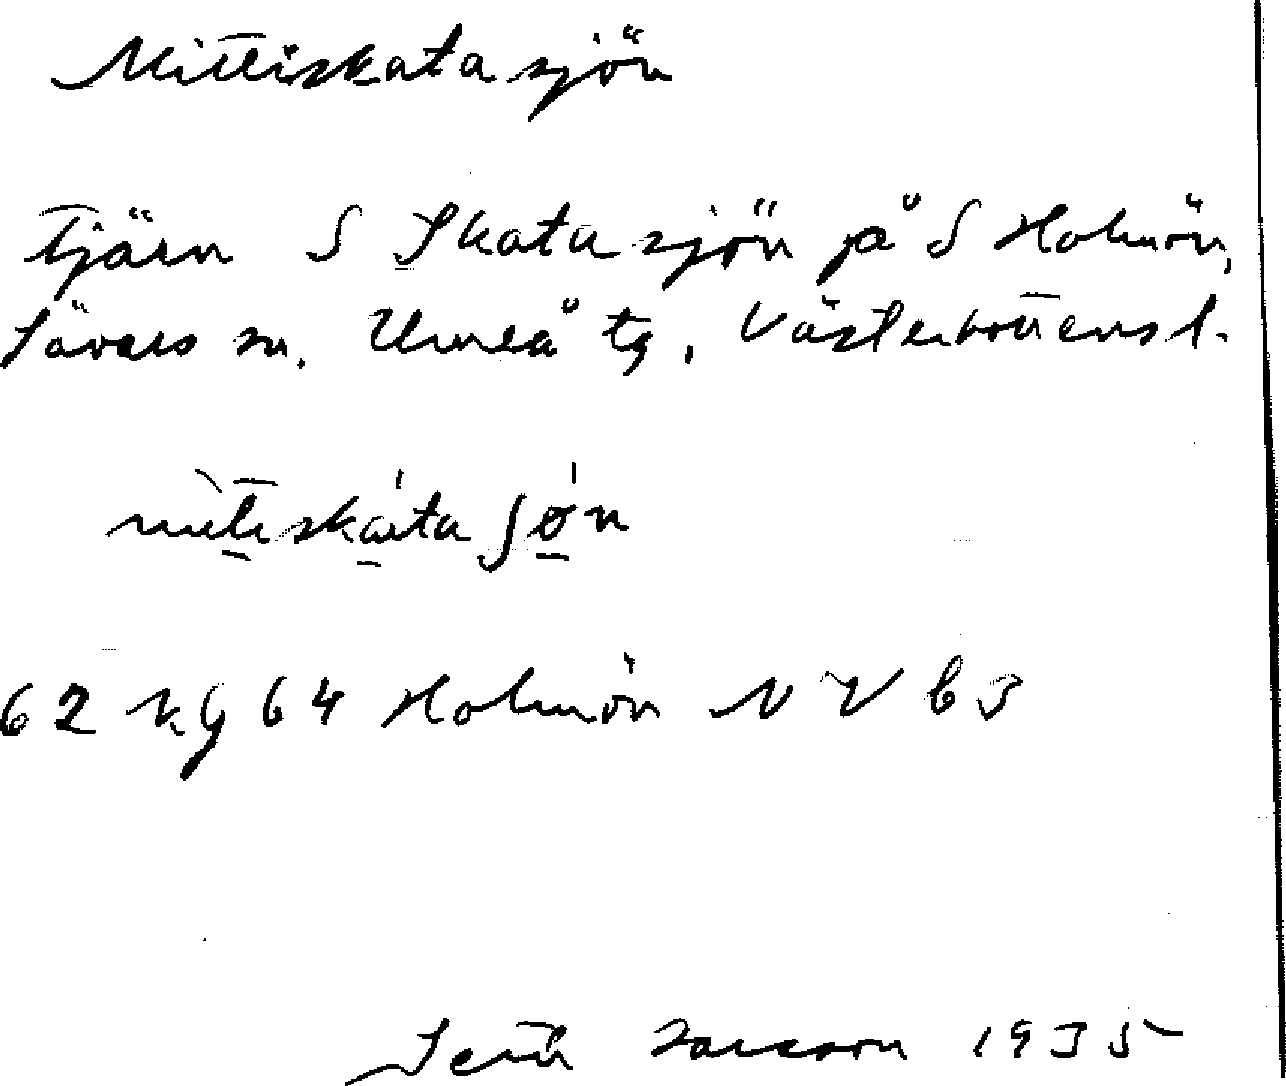 Mittiskatasjön
Tjärn S Skatasjön på S Holmön,
Sävars sn. Umeå tg, Västerbottens l.
mitiskataʃøn
62 Kg 64 Holmön NV b3
1935